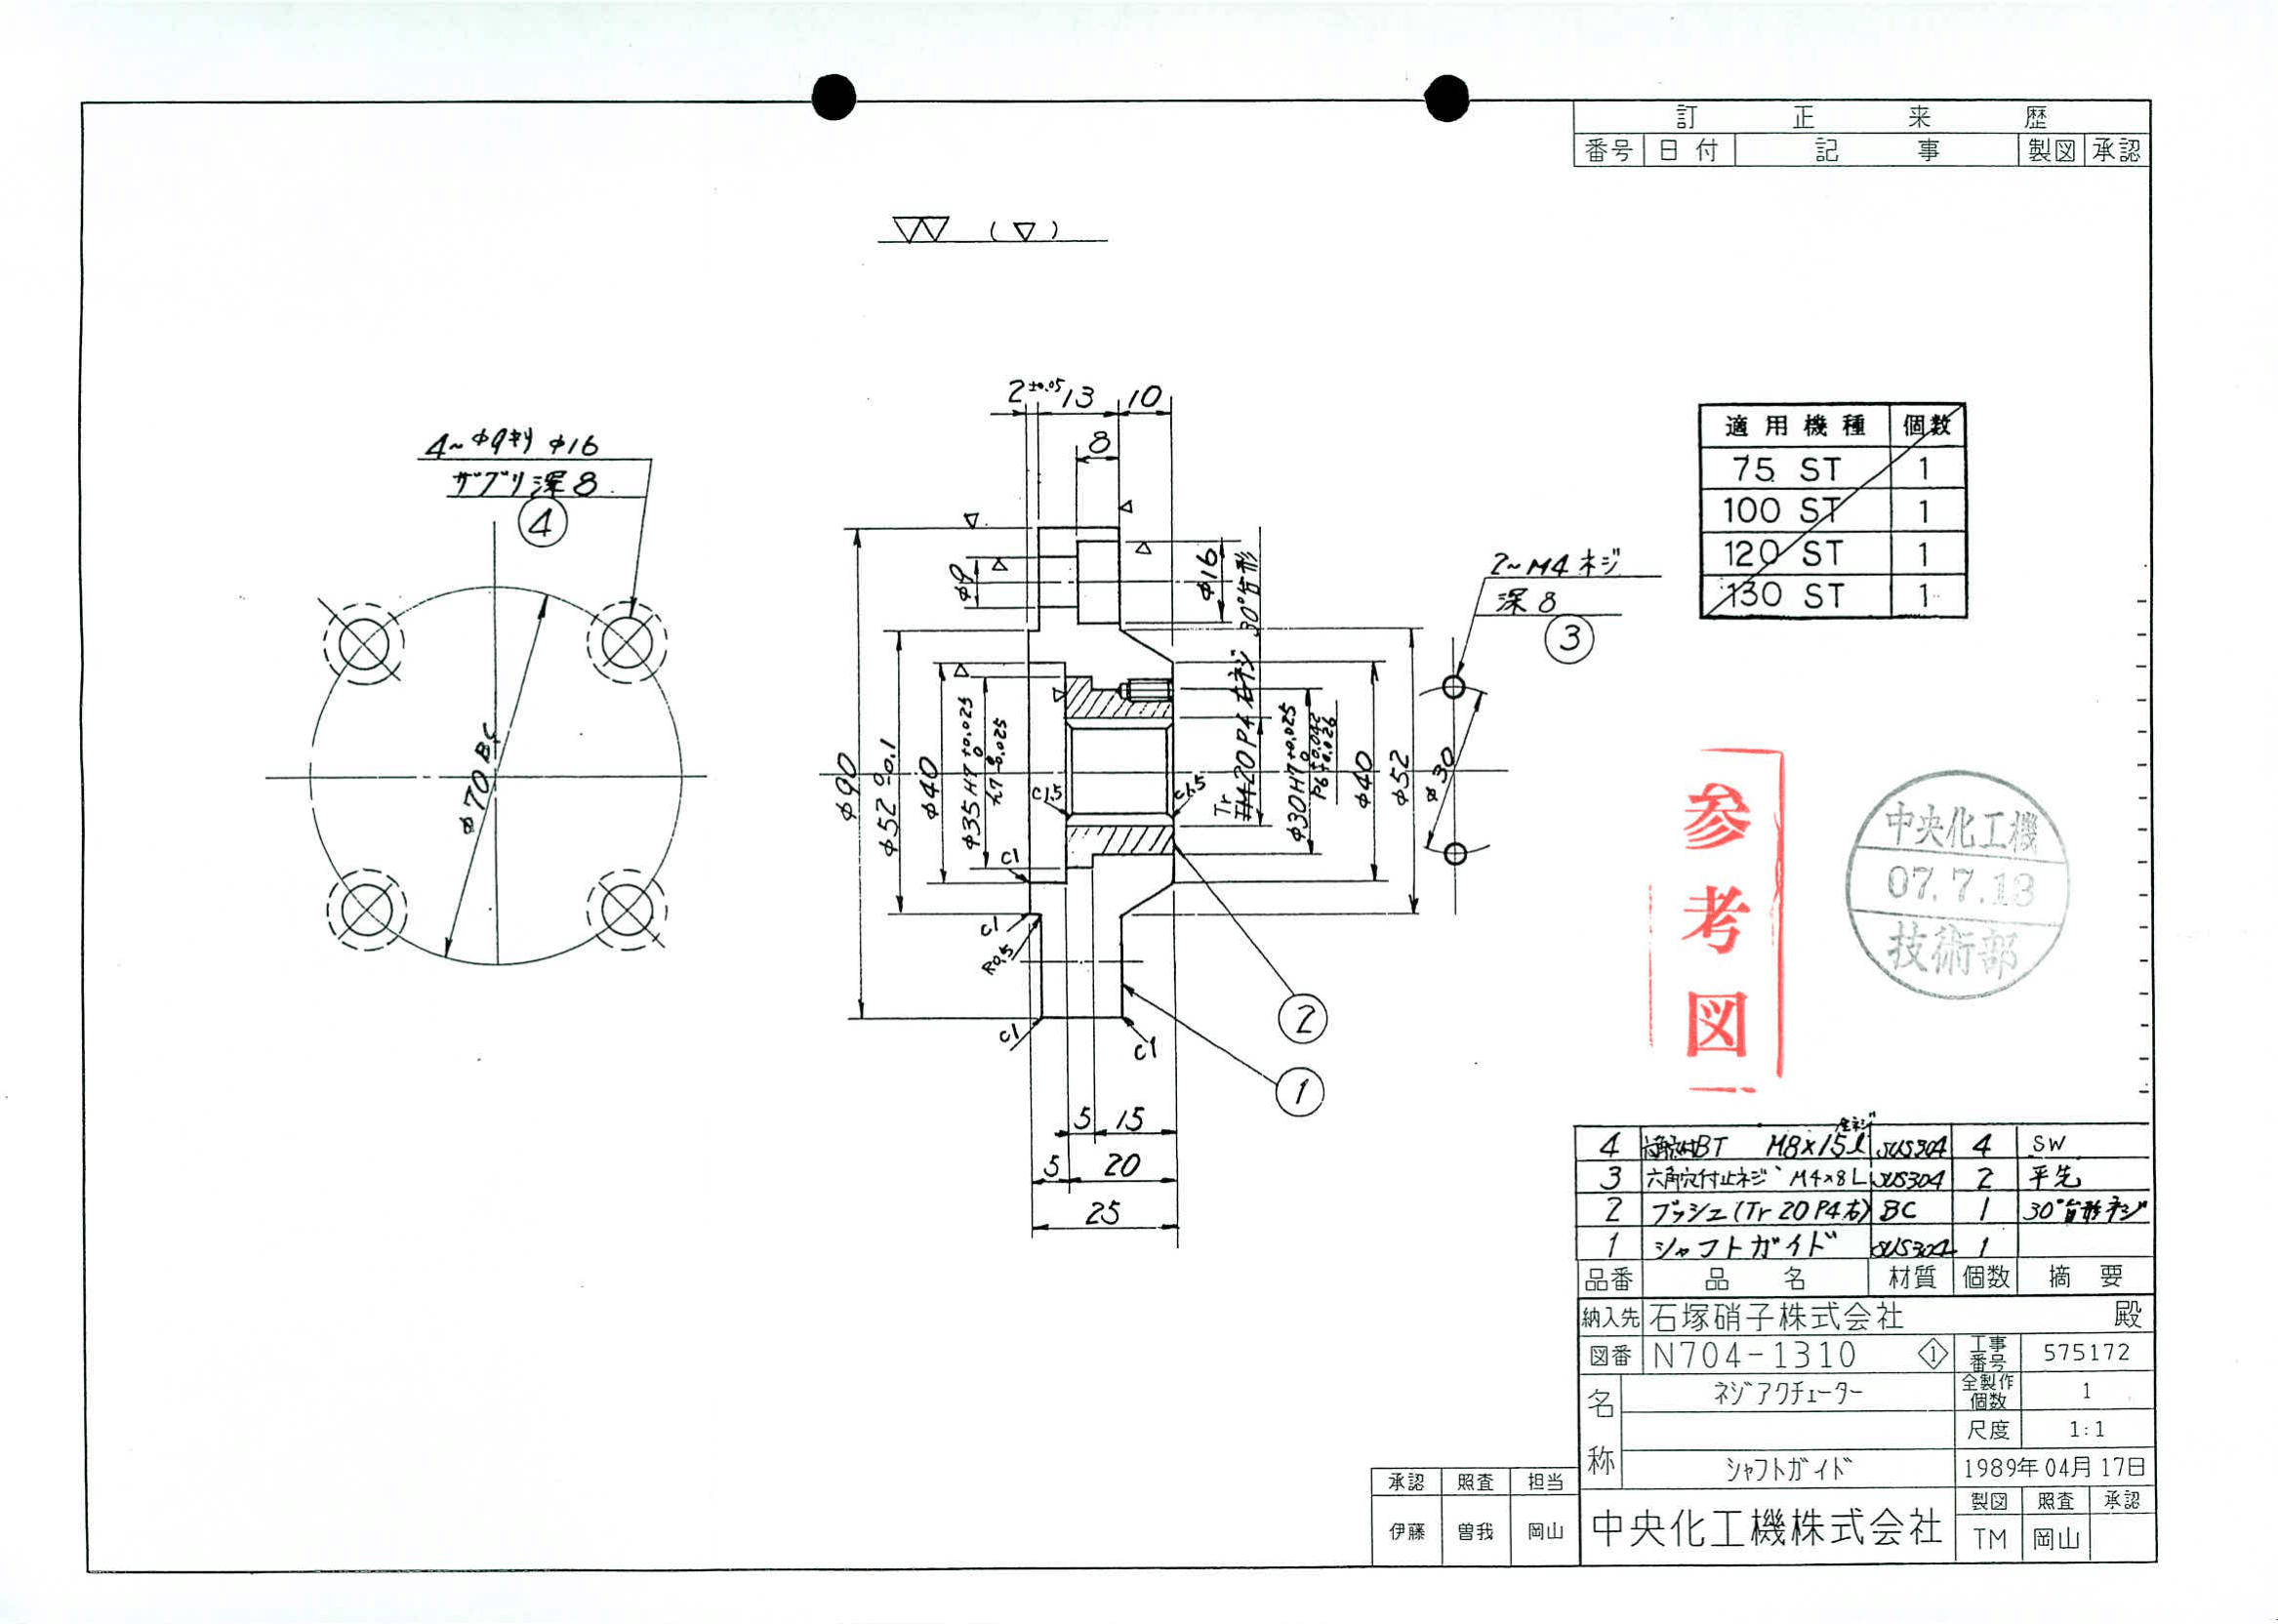 訂正来歴
番号 日付 記事 製図 承認
▽▽ (▽)
4~φ9キリ φ16
ザグリ深8
④
φ70 BC
2±0.05 13 10
8
φ9
φ16
φ90
φ52 0 -0.1
φ40
φ35H7 +0.025 0
h7 0 -0.025
C1.5
C1.5
Tr 20 P4 右ネジ 30°台形
φ30H7 +0.025 0
P6 +0.042 +0.026
φ40
φ52
φ30
2~M4ネジ
深8
③
C1
C1
R0.5
C1
C1
②
①
5 15
5 20
25
適用機種 個数
75 ST 1
100 ST 1
120 ST 1
130 ST 1
参考図
中央化工機
07.7.13
技術部
4 BT M8×15l 全ネジ SUS304 4 SW
3 六角穴付止ネジ M4×8L SUS304 2 平先
2 ブッシュ(Tr 20 P4右) BC 1 30°台形ネジ
1 シャフトガイド SUS304 1
品番 品名 材質 個数 摘要
納入先 石塚硝子株式会社 殿
図番 N704-1310 ① 工事番号 575172
名称 ネジアクチェーター 全製作個数 1
尺度 1:1
シャフトガイド 1989年04月17日
中央化工機株式会社 製図 照査 承認
TM 岡山
承認 照査 担当
伊藤 曽我 岡山